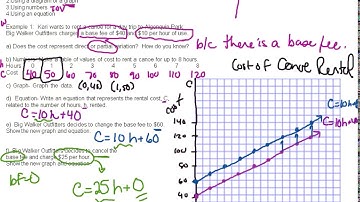 2 Using a diagram or a graph
3 Using numbers TOV
4 Using an equation
Example 1: Kari wants to rent a canoe for a day trip to Algonquin Park.
Big Walker Outfitters charges a base fee of $40 and $10 per hour of use.
a) Does the cost represent direct or partial variation? How do you know?
b/c there is a base fee.
b) Numbers: table of values of cost to rent for up to 8 hours.
Hours 0 1 2 3 4 5 6 7 8
40 50 60 70 80 90 100 110 120
c) Graph: Graph the data. (0,40) (1,50)
d) Equation: Write an equation that represents the rental cost, C
related to the number of hours, h rented.
C=10h+40
Big Walker Outfitters decides to change the base fee to $60.
Show the new graph and equation.
C=10h+60
f) Big Walker Outfitters decides to cancel the
base fee and charge $25 per hour.
Show the new graph and equation.
bf=0
C=25h+0
Cost of Canoe Rental
C
cost
140
120
100
80
60
40
C=10h
C=10h